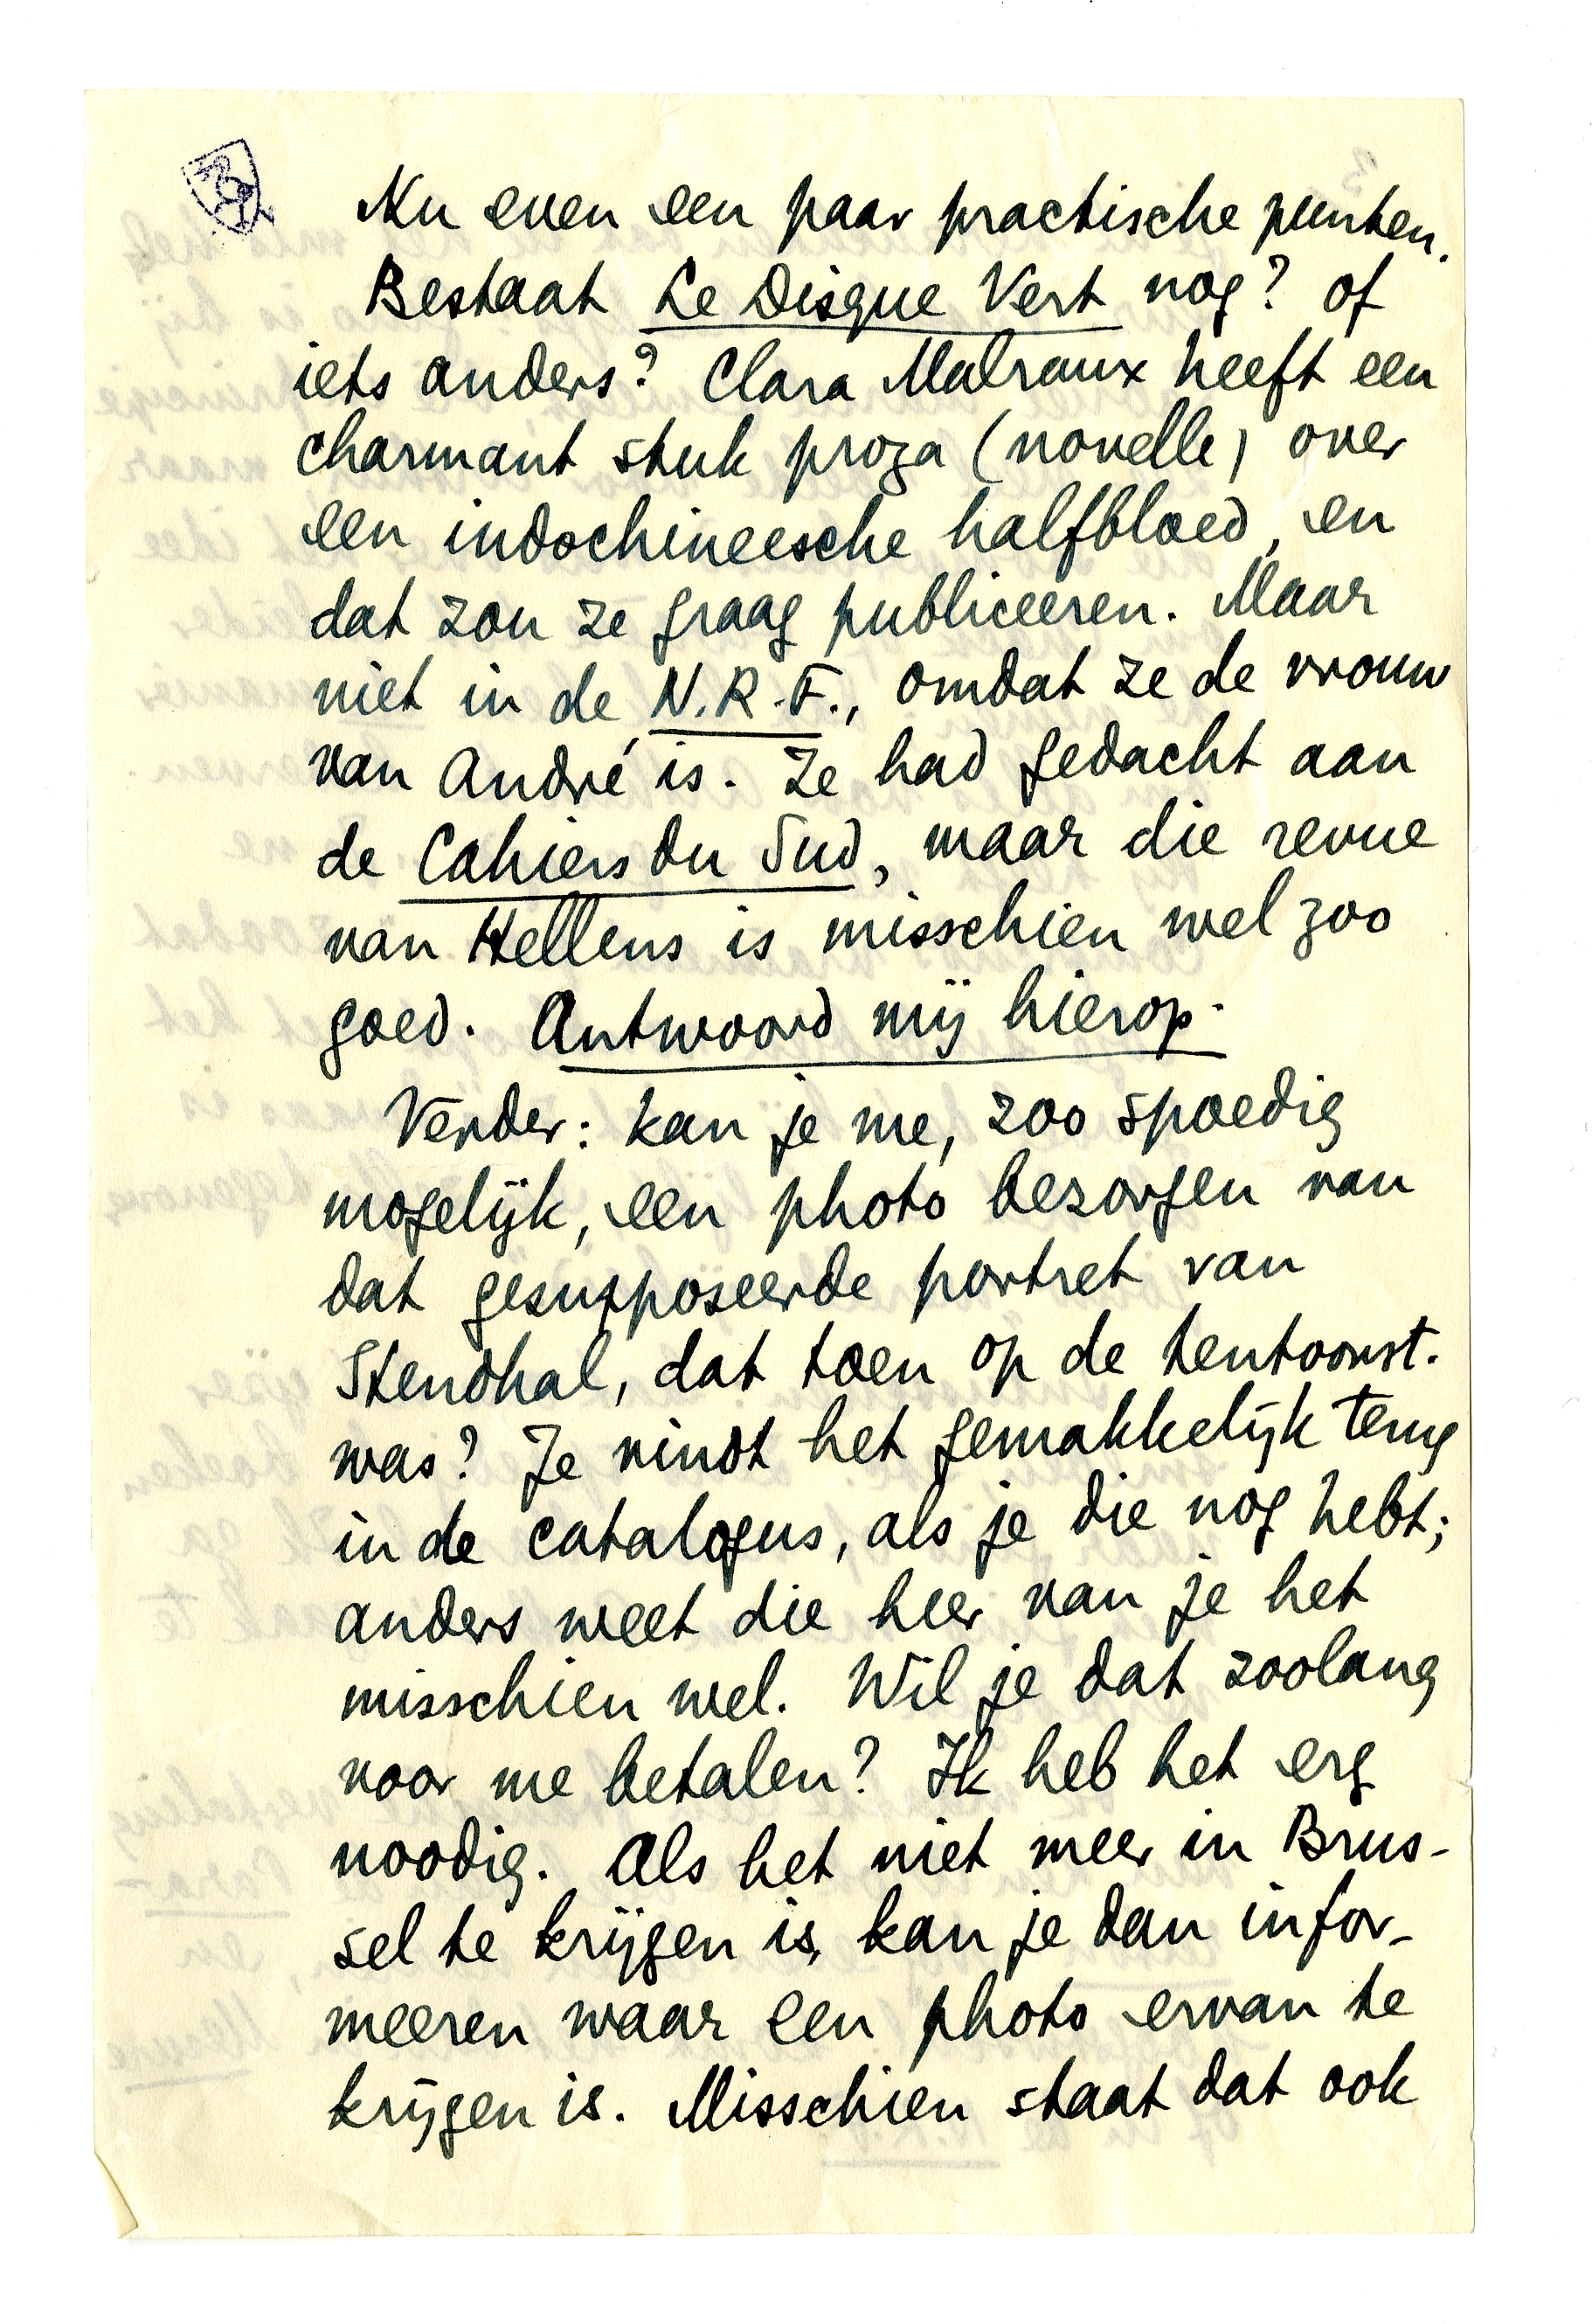 Nu even een paar practische punten.
Bestaat Le Disque Vert nog? of
iets anders? Clara Malraux heeft een
charmant stuk proza (novelle) over
een indochineesche halfbloed, en
dat zou ze graag publiceeren. Maar
niet in de N.R.F., omdat ze de vrouw
van André is. Ze had gedacht aan
de Cahiers du Sud, maar die revue
van Hellens is misschien wel zoo
goed. Antwoord mij hierop.
Verder: kan je me, zoo spoedig
mogelijk, een photo bezorgen van
dat gesupposeerde portret van
Stendhal, dat toen op de tentoonst.
was? Je vindt het gemakkelijk terug
in de catalogus, als je die nog hebt;
anders weet die heer van je het
misschien wel. Wil je dat zoolang
voor me betalen? Ik heb het erg
noodig. Als het niet meer in Brus-
sel te krijgen is, kan je dan infor-
meeren waar een photo ervan te
krijgen is. Misschien staat dat ook